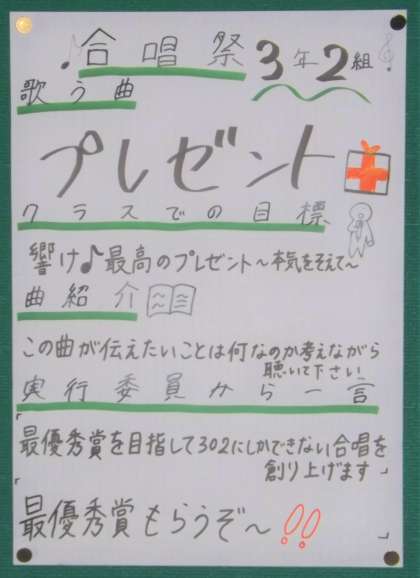 ♪合唱祭 3年2組
歌う曲
プレゼント
クラスでの目標
響け♪最高のプレゼント～本気をそえて～
曲紹介
この曲が伝えたいことは何なのか考えながら
聴いて下さい
実行委員から一言
「最優秀賞を目指して302にしかできない合唱を
創り上げます」
「最優秀賞もらうぞ～!!」